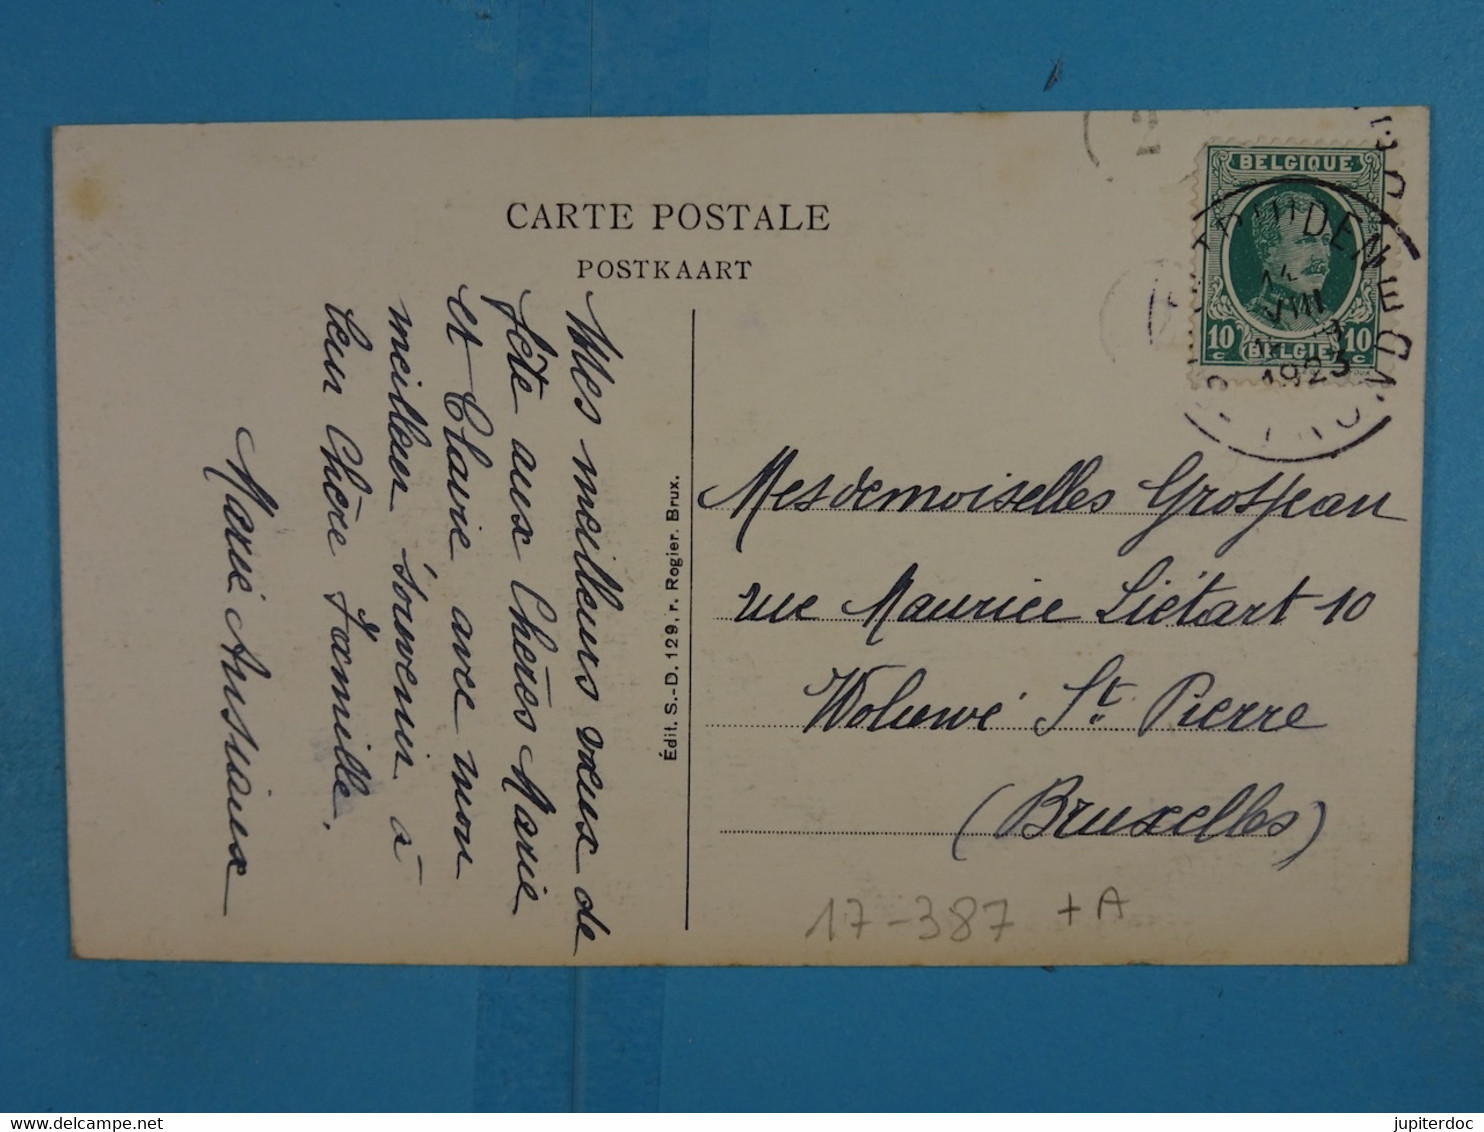 CARTE POSTALE
POSTKAART
Mes meilleurs vœux de
fête aux Chères Marie
et Claire avec mon
meilleur souvenir à
leur Chère Famille.
Marie Ansiaux
Édit. S.-D. 129, r. Rogier. Brux.
BELGIQUE
10 c
10 c
BELGIE
14
VIII
1923
2
Mesdemoiselles Grosjean
rue Maurice Liétart 10
Woluwé St. Pierre
(Bruxelles)
17-387 + A
jupiterdoc